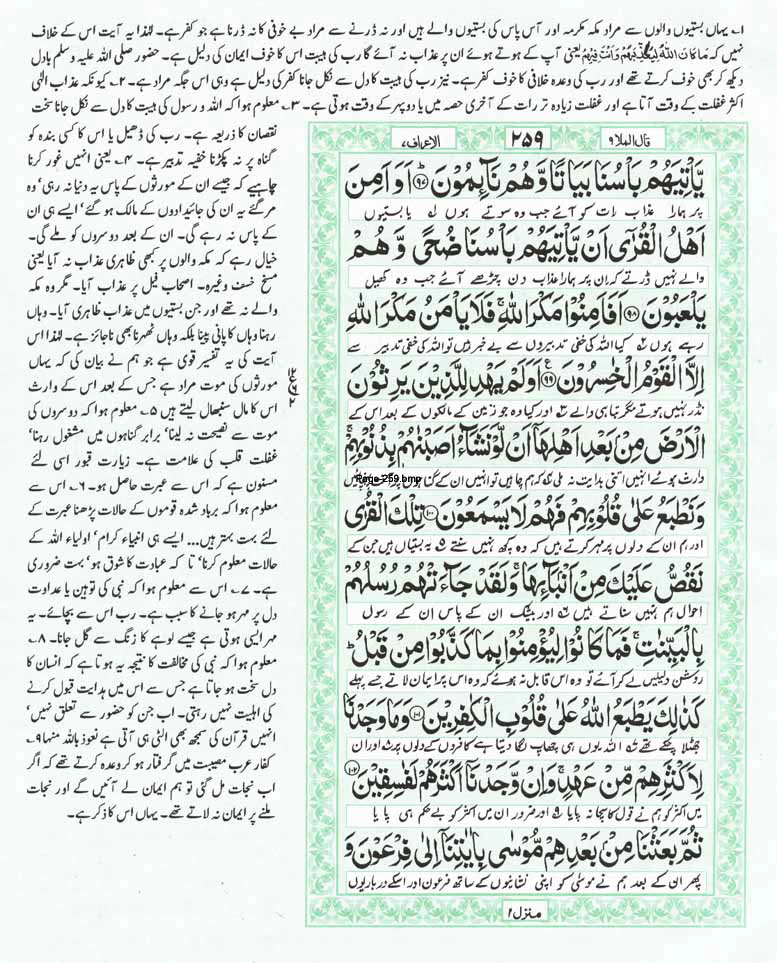 ۱؎ یہاں بستیوں والوں سے مراد مکہ مکرمہ اور آس پاس کی بستیوں والے ہیں اور نہ ڈرنے سے مراد بے خوفی کا نہ ڈرنا ہے جو کفر ہے۔ لہٰذا یہ آیت اس کے خلاف
نہیں کہ مَا كَانَ اللّٰهُ لِيُعَذِّبَهُمْ وَاَنْتَ فِيْهِمْ یعنی آپ کے ہوتے ہوئے ان پر عذاب نہ آئے گا رب کی ہیبت اس کا خوف ایمان کی دلیل ہے۔ حضور صلی اللہ علیہ وسلم بادل
دیکھ کر بھی خوف کرتے تھے اور رب کی وعدہ خلافی کا خوف کفر ہے۔ نیز رب کی ہیبت کا دل سے نکل جانا کفر کی دلیل ہے وہی اس جگہ مراد ہے۔ ۲؎ کیونکہ عذاب الٰہی
اکثر غفلت کے وقت آتا ہے اور غفلت زیادہ تر رات کے آخری حصہ میں یا دوپہر کے وقت ہوتی ہے۔ ۳؎ معلوم ہوا کہ اللہ و رسول کی ہیبت کا دل سے نکل جانا سخت
نقصان کا ذریعہ ہے۔ رب کی ڈھیل یا اس کا کسی بندہ کو
گناہ پر نہ پکڑنا خفیہ تدبیر ہے۔ ۴؎ یعنی انہیں غور کرنا
چاہیے کہ جیسے ان کے مورثوں کے پاس یہ دنیا نہ رہی، وہ
مر گئے یہ ان کی جائیدادوں کے مالک ہو گئے، ایسے ہی ان
کے پاس نہ رہے گی۔ ان کے بعد دوسروں کو ملے گی۔
خیال رہے کہ مکہ والوں پر کبھی ظاہری عذاب نہ آیا یعنی
مسخ خسف وغیرہ۔ اصحاب فیل پر عذاب آیا۔ مگر وہ مکہ
والے نہ تھے اور جن بستیوں میں عذاب ظاہری آیا۔ وہاں
رہنا وہاں کا پانی پینا بلکہ وہاں ٹھہرنا بھی ناجائز ہے۔ لہٰذا اس
آیت کی یہ تفسیر قوی ہے جو ہم نے بیان کی کہ یہاں
مورثوں کی موت مراد ہے جس کے بعد اس کے وارث
اس کا مال سنبھال لیتے ہیں ۵؎ معلوم ہوا کہ دوسروں کی
موت سے نصیحت نہ لینا، برابر گناہوں میں مشغول رہنا،
غفلت قلب کی علامت ہے۔ زیارت قبور اسی لئے
مسنون ہے کہ اس سے عبرت حاصل ہو۔ ۶؎ اس سے
معلوم ہوا کہ برباد شدہ قوموں کے حالات پڑھنا عبرت کے
لئے بہت بہتر ہیں... ایسے ہی انبیاء کرام، اولیاء اللہ کے
حالات معلوم کرنا، تا کہ عبادت کا شوق ہو، بہت ضروری
ہے۔ ۷؎ اس سے معلوم ہوا کہ نبی کی توہین یا عداوت
دل پر مہر ہو جانے کا سبب ہے۔ رب اس سے بچائے۔ یہ
مہر ایسی ہوتی ہے جیسے لوہے کا زنگ سے گل جانا۔ ۸؎
معلوم ہوا کہ نبی کی مخالفت کا نتیجہ یہ ہوتا ہے کہ انسان کا
دل سخت ہو جاتا ہے جس سے اس میں ہدایت قبول کرنے
کی اہلیت نہیں رہتی۔ اب جن کو حضور سے تعلق نہیں،
انہیں قرآن کی سمجھ بھی الٹی ہی آتی ہے نعوذ باللہ منہا ۹؎
کفار عرب مصیبت میں گرفتار ہو کر وعدہ کرتے تھے کہ اگر
اب نجات مل گئی تو ہم ایمان لے آئیں گے اور نجات
ملنے پر ایمان نہ لاتے تھے۔ یہاں اس کا ذکر ہے۔
قال الملا ۹ ۲۵۹ الاعراف ۷
يَّاْتِيَهُمْ بَاْسُنَا بَيَاتًا وَّهُمْ نَآئِمُوْنَ ؕ﴿۹۷﴾ اَوَ اَمِنَ
پر ہمارا عذاب رات کو آئے جب وہ سوتے ہوں یا بستیوں
اَهْلُ الْقُرٰۤى اَنْ يَّاْتِيَهُمْ بَاْسُنَا ضُحًى وَّهُمْ
والے نہیں ڈرتے کہ ان پر ہمارا عذاب دن چڑھے آئے جب وہ کھیل
يَلْعَبُوْنَ ﴿۹۸﴾ اَفَاَمِنُوْا مَكْرَ اللّٰهِ ۚ فَلَا يَاْمَنُ مَكْرَ اللّٰهِ
رہے ہوں کیا اللہ کی خفی تدبیروں سے بے خبر ہیں تو اللہ کی خفی تدبیر سے
اِلَّا الْقَوْمُ الْخٰسِرُوْنَ ﴿۹۹﴾ اَوَلَمْ يَهْدِ لِلَّذِيْنَ يَرِثُوْنَ
نڈر نہیں ہوتے مگر تباہی والے اور کیا وہ جو زمین کے مالکوں کے بعد اس کے
الْاَرْضَ مِنْۢ بَعْدِ اَهْلِهَاۤ اَنْ لَّوْ نَشَآءُ اَصَبْنٰهُمْ بِذُنُوْبِهِمْ ۚ
وارث ہوئے انہیں اتنی ہدایت نہ ملی کہ ہم چاہیں تو انہیں ان کے گناہوں پر آفت پہنچائیں
Page-259.bmp
وَنَطْبَعُ عَلٰى قُلُوْبِهِمْ فَهُمْ لَا يَسْمَعُوْنَ ﴿۱۰۰﴾ تِلْكَ الْقُرٰى
اور ہم ان کے دلوں پر مہر کرتے ہیں کہ وہ کچھ نہیں سنتے ۵؎ یہ بستیاں ہیں جن کے
نَقُصُّ عَلَيْكَ مِنْ اَنْۢبَآئِهَا ۚ وَلَقَدْ جَآءَتْهُمْ رُسُلُهُمْ
احوال ہم تمہیں سناتے ہیں ۶؎ اور بیشک ان کے پاس ان کے رسول
بِالْبَيِّنٰتِ ۚ فَمَا كَانُوْا لِيُؤْمِنُوْا بِمَا كَذَّبُوْا مِنْ قَبْلُ ؕ
روشن دلیلیں لے کر آئے تو وہ اس قابل نہ ہوئے کہ وہ اس پر ایمان لاتے جسے پہلے
كَذٰلِكَ يَطْبَعُ اللّٰهُ عَلٰى قُلُوْبِ الْكٰفِرِيْنَ ﴿۱۰۱﴾ وَمَا وَجَدْنَا
جھٹلا چکے تھے اللہ یوں ہی چھاپ لگا دیتا ہے کافروں کے دلوں پر اور ان
لِاَكْثَرِهِمْ مِّنْ عَهْدٍ ۚ وَاِنْ وَّجَدْنَاۤ اَكْثَرَهُمْ لَفٰسِقِيْنَ ﴿۱۰۲﴾
میں اکثر کو ہم نے قول کا سچا نہ پایا اور ضرور ان میں اکثر کو بے حکم ہی پایا
ثُمَّ بَعَثْنَا مِنْۢ بَعْدِهِمْ مُّوْسٰى بِاٰيٰتِنَاۤ اِلٰى فِرْعَوْنَ وَ
پھر ان کے بعد ہم نے موسیٰ کو اپنی نشانیوں کے ساتھ فرعون اور اسکے درباریوں
منزل ۲